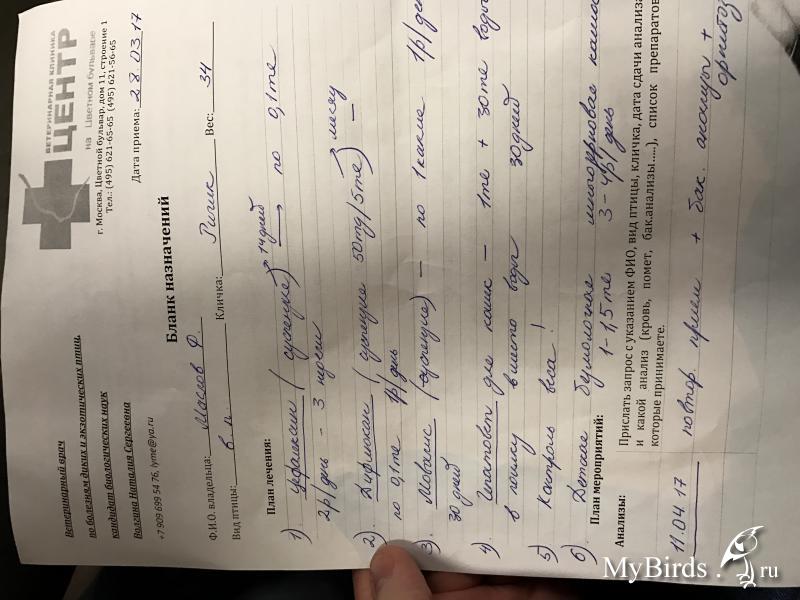 Ветеринарный врач
по болезням диких и экзотических птиц,
кандидат биологических наук
Волгина Наталия Сергеевна
+7 909 699 54 76, lyme@ya.ru
ВЕТЕРИНАРНАЯ КЛИНИКА
ЦЕНТР
на Цветном бульваре
г. Москва, Цветной бульвар, дом 11, строение 1
Тел.: (495) 621-65-65 (495) 621-56-65
Дата приема: 28.03.17
Бланк назначений
Ф.И.О. владельца: Маслов Ф.
Вид птицы: в п Кличка: Рыжик Вес: 34
План лечения:
1). (суспензия) 14 дней по 0,1 ml
2р/день - 3 недели
2). (суспензия 50mg/5ml) месяц
по 0,1 ml 1р/день
3). (суспензия) — по 1 капле 1р/день
30 дней
4). для кошек — 1 ml + 30 ml воды
в поилку вместо воды 30 дней
5) Контроль веса!
6) Детская безмолочная каша
1-1,5 ml 3-4р/день
План мероприятий:
Анализы: Прислать запрос с указанием ФИО, вид птицы, кличка, дата сдачи анализа
и какой анализ (кровь, помет, бак.анализы.....), список препаратов
которые принимаете.
11.04.17 повтор. прием + бак. анализы +
орнитоз
MyBirds.ru